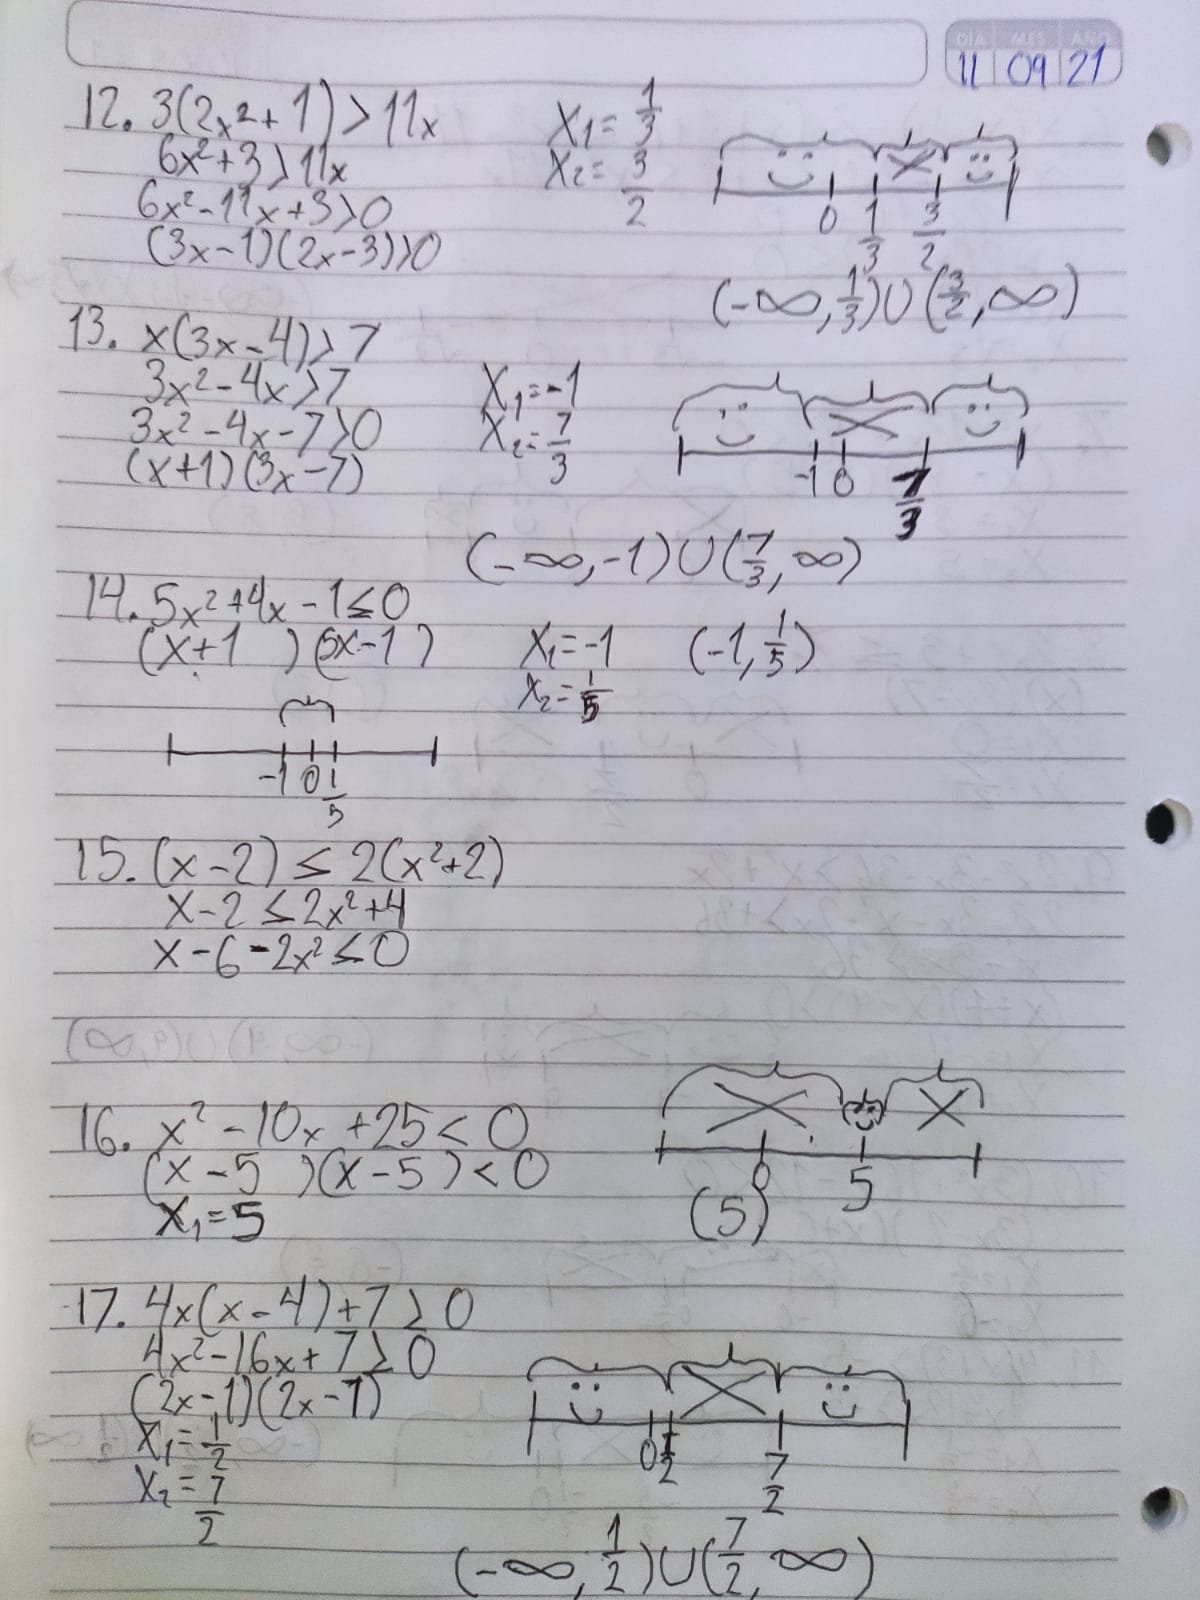 DÍA MES AÑO
11 09 21
12. 3(2x²+1)>11x
6x²+3>11x
6x²-11x+3>0
(3x-1)(2x-3)>0
X₁= 1/3
X₂= 3/2
0 1/3 3/2
(-∞,1/3)U(3/2,∞)
13. x(3x-4)>7
3x²-4x>7
3x²-4x-7>0
(x+1)(3x-7)
X₁=-1
X₂=7/3
-1 0 7/3
(-∞,-1)U(7/3,∞)
14. 5x²+4x-1≤0
(x+1)(5x-1)
X₁=-1
X₂=1/5
(-1,1/5)
-1 0 1/5
15. (x-2)≤2(x²+2)
x-2≤2x²+4
x-6-2x²≤0
16. x²-10x+25<0
(x-5)(x-5)<0
X₁=5
0 5
(5)
17. 4x(x-4)+7≥0
4x²-16x+7≥0
(2x-1)(2x-7)
X₁=1/2
X₂=7/2
0 1/2 7/2
(-∞,1/2)U(7/2,∞)